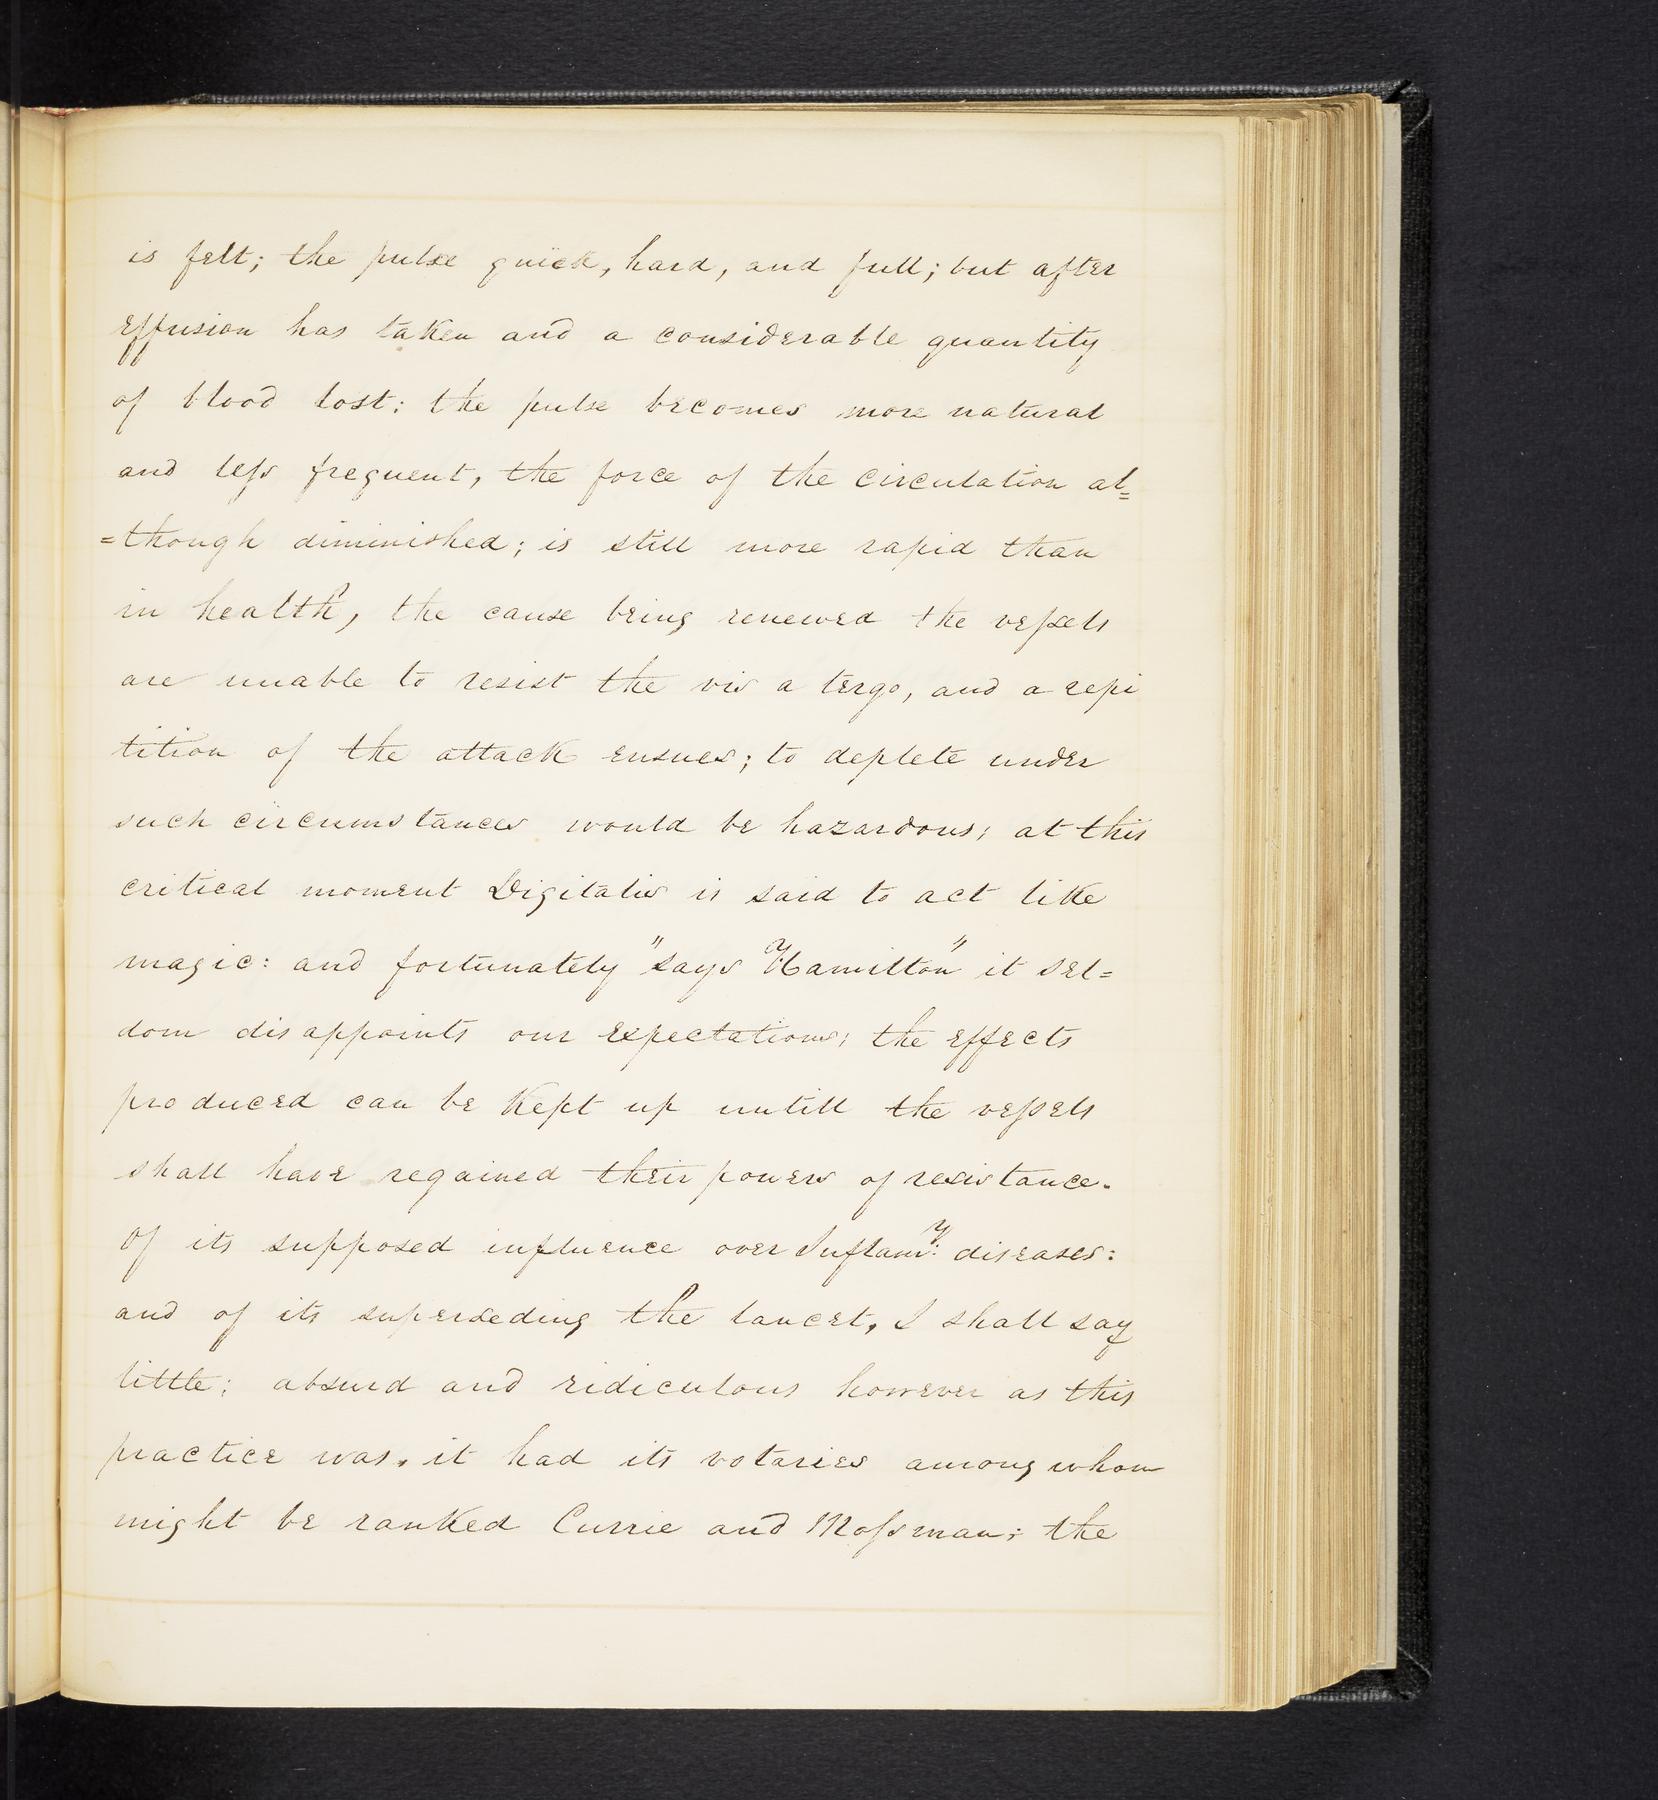 is felt; the pulse quick, hard, and full; but after
effusion has taken and a considerable quantity
of blood lost: the pulse becomes more natural
and less frequent, the force of the circulation al=
=though diminished; is still more rapid than
in health, the cause being renewed the vessels
are unable to resist the vis a tergo, and a repi
tition of the attack ensues; to deplete under
such circumstances would be hazardous; at this
critical moment Digitalis is said to act like
magic: and fortunately "says Hamilton" it sel=
dom disappoints our expectations; the effects
produced can be kept up untill the vessels
shall have regained their powers of resistance.
Of its supposed influence over Inflamy: diseases:
and of its superseding the lancet, I shall say
little; absurd and ridiculous however as this
practice was, it had its votaries among whom
might be ranked Currie and Mossman; the